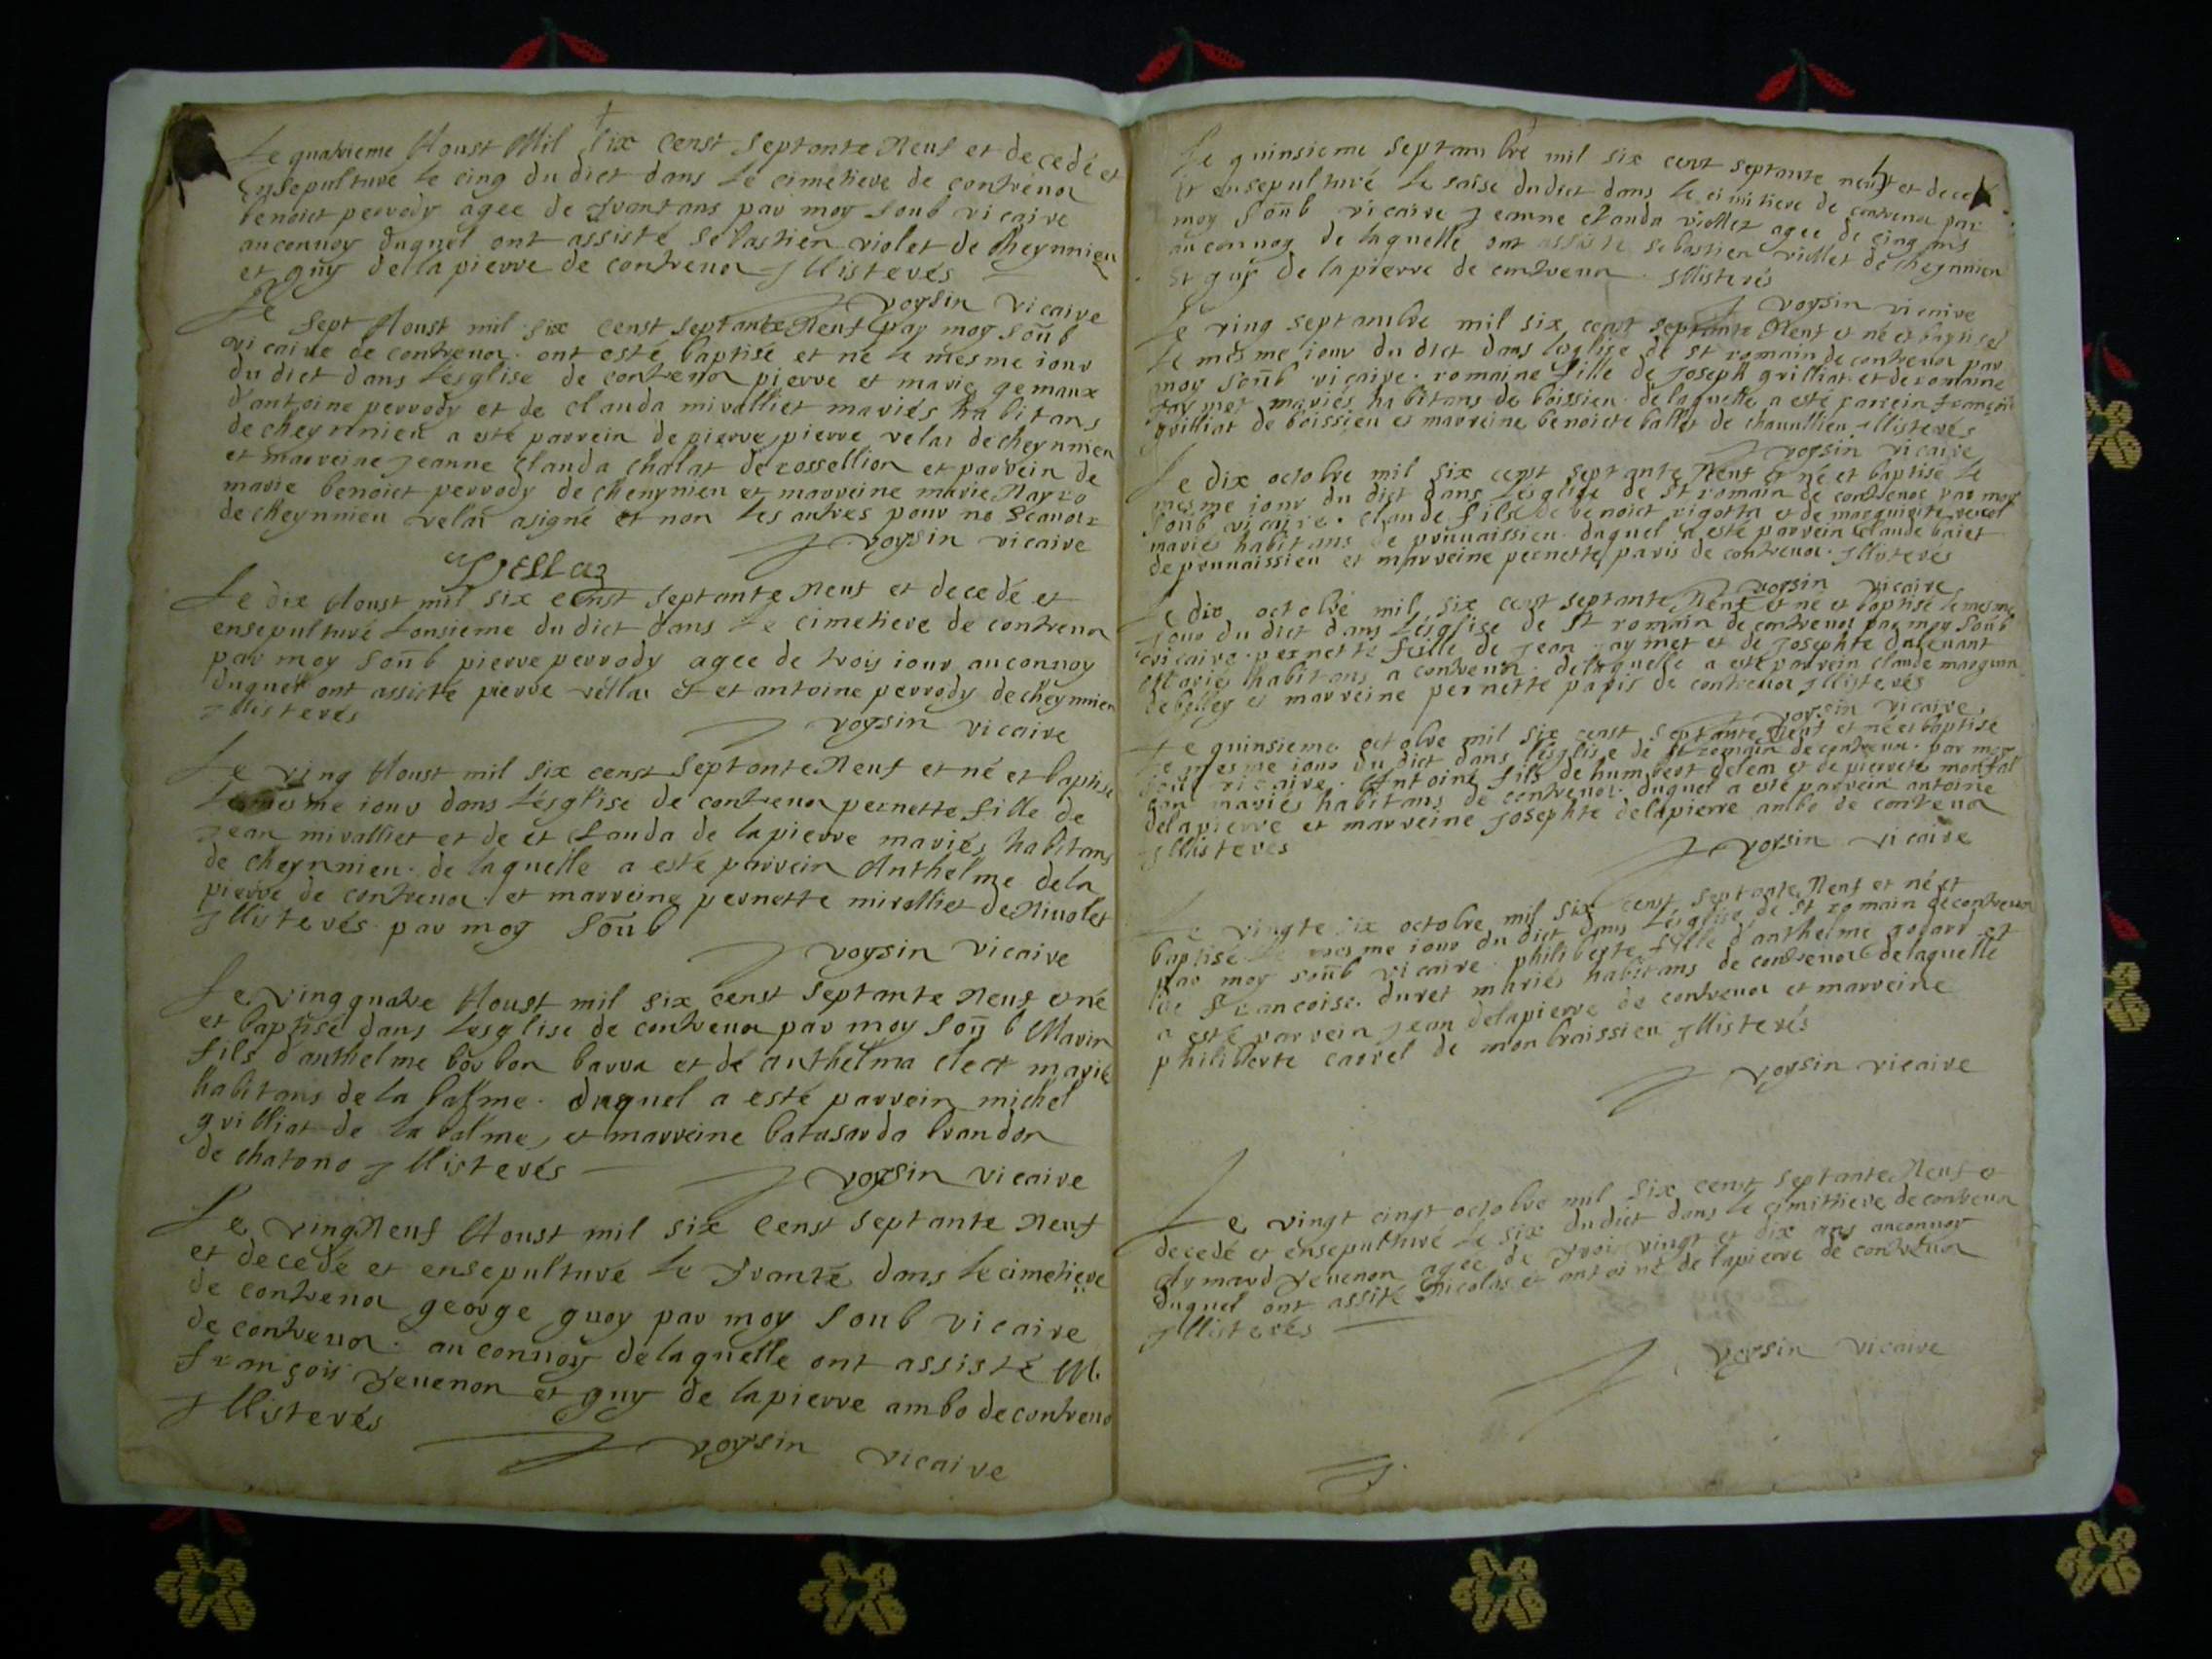 Le quatrieme Aoust Mil six censt septante Neuf et decedé et
ensepulturé le cinq du dict dans le cimetiere de contreuoz
benoict perrody agee de trantans par moy soub vicaire
au conuoy duquel ont assisté sebastien violet de cheynnieu
et guy de la pierre de contreuoz Illisterés
voysin vicaire
Le sept Aoust mil six censt septante Neuf par moy soub
vicaire de contreuoz ont esté baptisé et né le mesme iour
du dict dans l'esglise de contreuoz pierre et marie gemaux
d'antoine perrody et de clauda miralliet mariés habitans
de cheynnieu a esté parrein de pierre pierre velaz de cheynnieu
et marreine Jeanne clauda chalat de rossellion et parrein de
marie benoict perrody de cheynnieu et marreine marie
de cheynnieu velaz a signé et non les autres pour ne scauoir
voysin vicaire
Vellaz
Le dix Aoust mil six censt septante Neuf et decedé et
ensepulturé l'onsieme du dict dans le cimetiere de contreuoz
par moy soub pierre perrody agee de trois iour au conuoy
duquel ont assisté pierre vellaz et et antoine perrody de cheynnieu
Illisterés
voysin vicaire
Le ving Aoust mil six censt septante Neuf et né et baptisé
le mesme iour dans l'esglise de contreuoz pernette fille de
Jean miralliet et de et clauda de la pierre mariés habitans
de cheynnieu. de laquelle a esté parrein Anthelme de la
pierre de contreuoz et marreine pernette miralliet de Niuolet
Illisterés par moy soub
voysin vicaire
Le ving quatre Aoust mil six censt septante Neuf et né
et baptisé dans l'esglise de contreuoz par moy soub Marin
fils d'anthelme borbon barra et de anthelma clect marié
habitans de la balme. duquel a esté parrein michel
grilliat de la balme, et marreine brandon
de chatono Illisterés
voysin vicaire
Le ving Neuf Aoust mil six censt septante Neuf
et decedé et ensepulturé le trante dans le cimetiere
de contreuoz george guoy par moy soub vicaire
de contreuoz. au conuoy de laquelle ont assisté M.
françois Teuenon et guy de la pierre ambo de contreuoz
Illisterés
voysin vicaire
Le quinsieme septambre mil six cent septante neuf et decedé
et ensepulturé le saise du dict dans le cimitiere de contreuoz par
moy soub vicaire Jeanne clauda viollet agee de cinq ans
au conuoy de laquelle ont assisté sebastien viollet de cheynnieu
et guy de la pierre de contreuoz. Illisterés
voysin vicaire
Le ving septambre mil six cent septante Neuf et né et baptisé
le mesme iour du dict dans l'esglise de st romain de contreuoz par
moy soub vicaire. romaine fille de Joseph grilliat et de romaine
Jaymet mariés habitans de boissieu. de laquelle a esté parrein françois
grilliat de boissieu et marreine benoicte ballet de chauullieu Illisterés
voysin vicaire
Le dix octobre mil six cent septante Neuf et né et baptisé le
mesme iour du dict dans l'esglise de st romain de contreuoz par moy
soub vicaire. Claude fils de benoict rigottz et de marguerite reuel
mariés habitans de prunaissieu. duquel a esté parrein Claude baiet
de prunaissieu et marreine pernette paris de contreuoz. Illisterés
voysin vicaire
Le dix octobre mil six cent septante Neuf et né et baptisé le mesme
Jour du dict dans l'esglise de st romain de contreuoz par moy soub
vicaire. pernette fille de Jean Jaymet et de Josephte
Mariés habitans a contreuoz. de laquelle a esté parrein claude
de belley et marreine pernette paris de contreuoz Illisterés
voysin vicaire.
Le quinsieme octobre mil six censt septante Neuf et né et baptisé
le mesme iour du dict dans l'esglise de st romain de contreuoz. par moy
soub vicaire. Antoine fils de humbert et de pierrete
mariés habitans de contreuoz. duquel a esté parrein antoine
de la pierre et marreine Josephte de la pierre ambo de contreuoz
Illisterés
voysin vicaire
Le vingte six octobre mil six cent septante Neuf et né et
baptisé le mesme iour du dict dans l'esglise de st romain de contreuoz
par moy soub vicaire. philiberte fille d'anthelme gojard et
de francoise duret mariés habitans de contreuoz de laquelle
a esté parrein Jean de la pierre de contreuoz et marreine
philiberte carrel de monbraissieu Illisterés
voysin vicaire
Le vingt cingt octobre mil six cent septante Neuf et
decedé et ensepulturé le six du dict dans le cimithiere de contreuoz
Aymard Teuenon agée de trois vingt et dix ans au conuoy
duquel ont assité Nicolas et antoine de la pierre de contreuoz
Illisterés
voysin vicaire